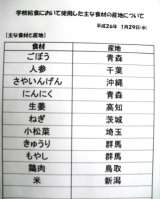 学校給食において使用した主な食材の産地について
平成26年 1月29日(水)
【主な食材と産地】
食材 産地
ごぼう 青森
人参 千葉
さやいんげん 沖縄
にんにく 青森
生姜 高知
ねぎ 茨城
小松菜 埼玉
きゅうり 群馬
もやし 群馬
鶏肉 鳥取
米 新潟